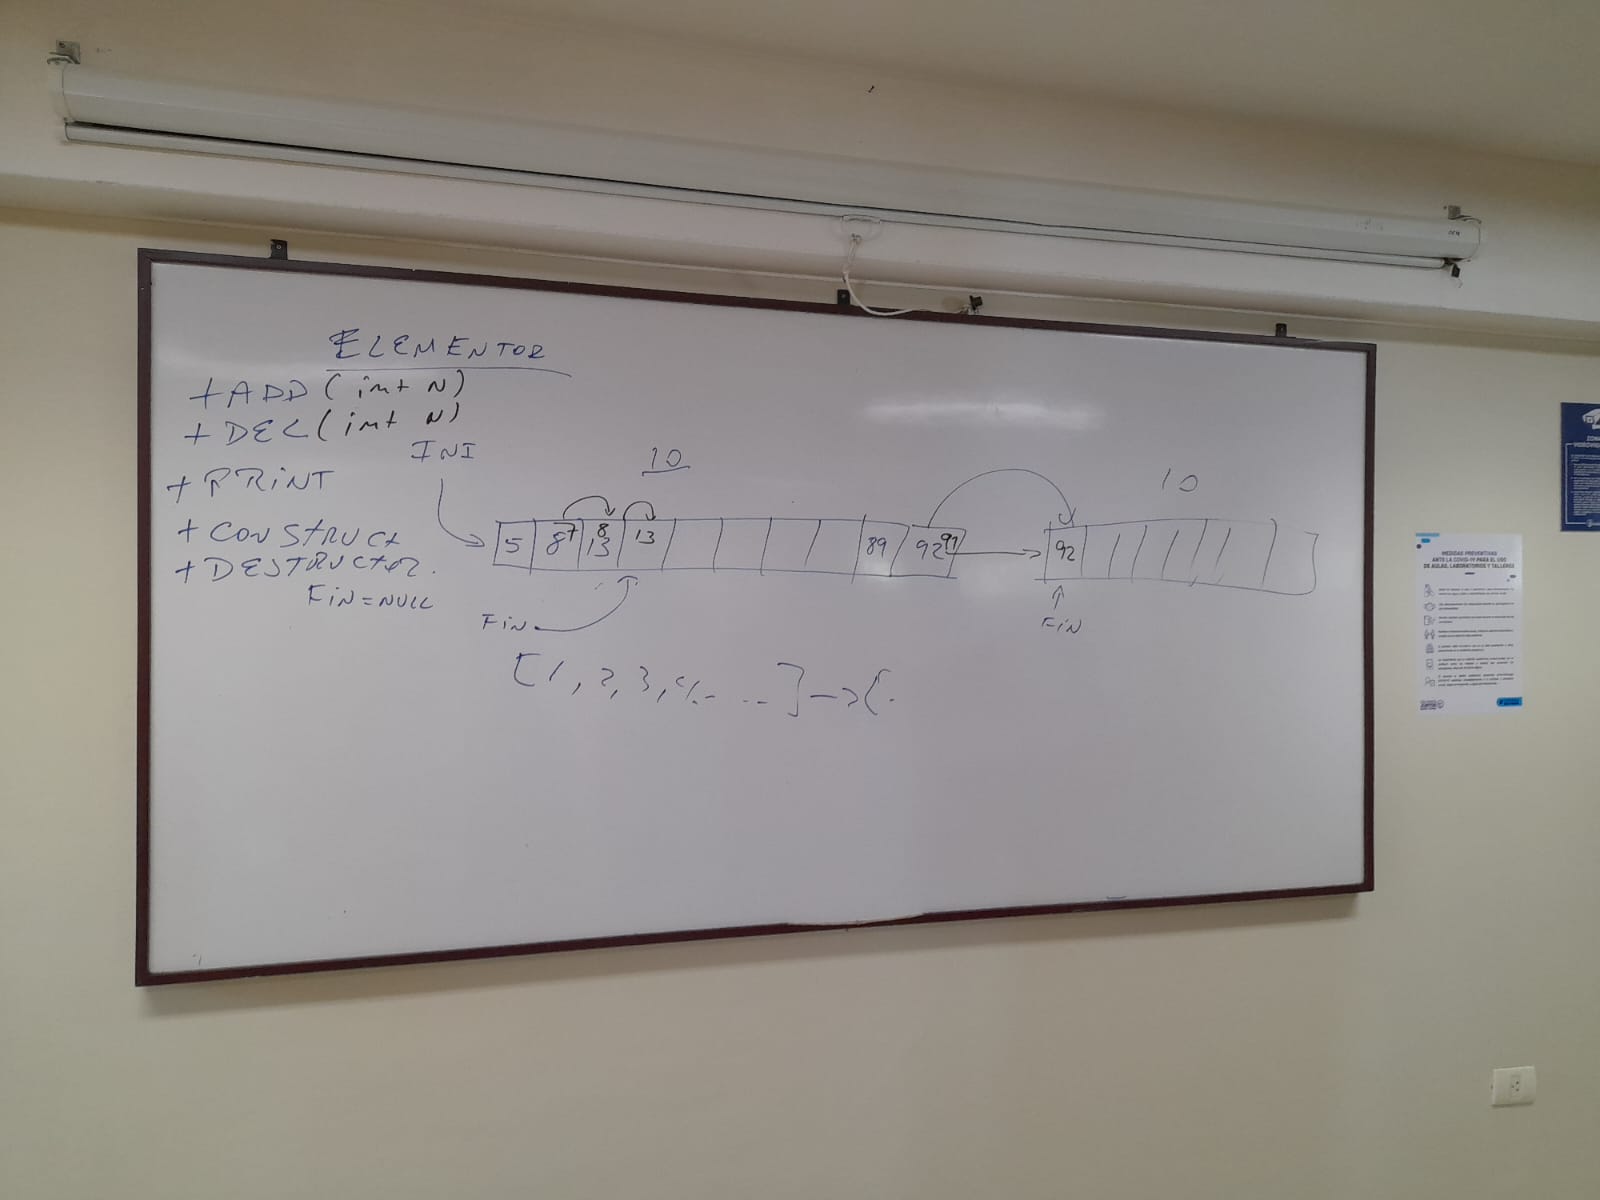 ELEMENTOR
+ ADD (int N)
+ DEL (int N)
INI
+ PRINT
+ CONSTRUCT
+ DESTRUCTOR.
FIN = NULL
10
5 8 7 8 13 13 89 92 91
FIN
10
92
FIN
[1, 2, 3, 4, - - ..] -> [.
MEDIDAS PREVENTIVAS
ANTE LA COVID-19 PARA EL USO
DE AULAS, LABORATORIOS Y TALLERES
ZONA